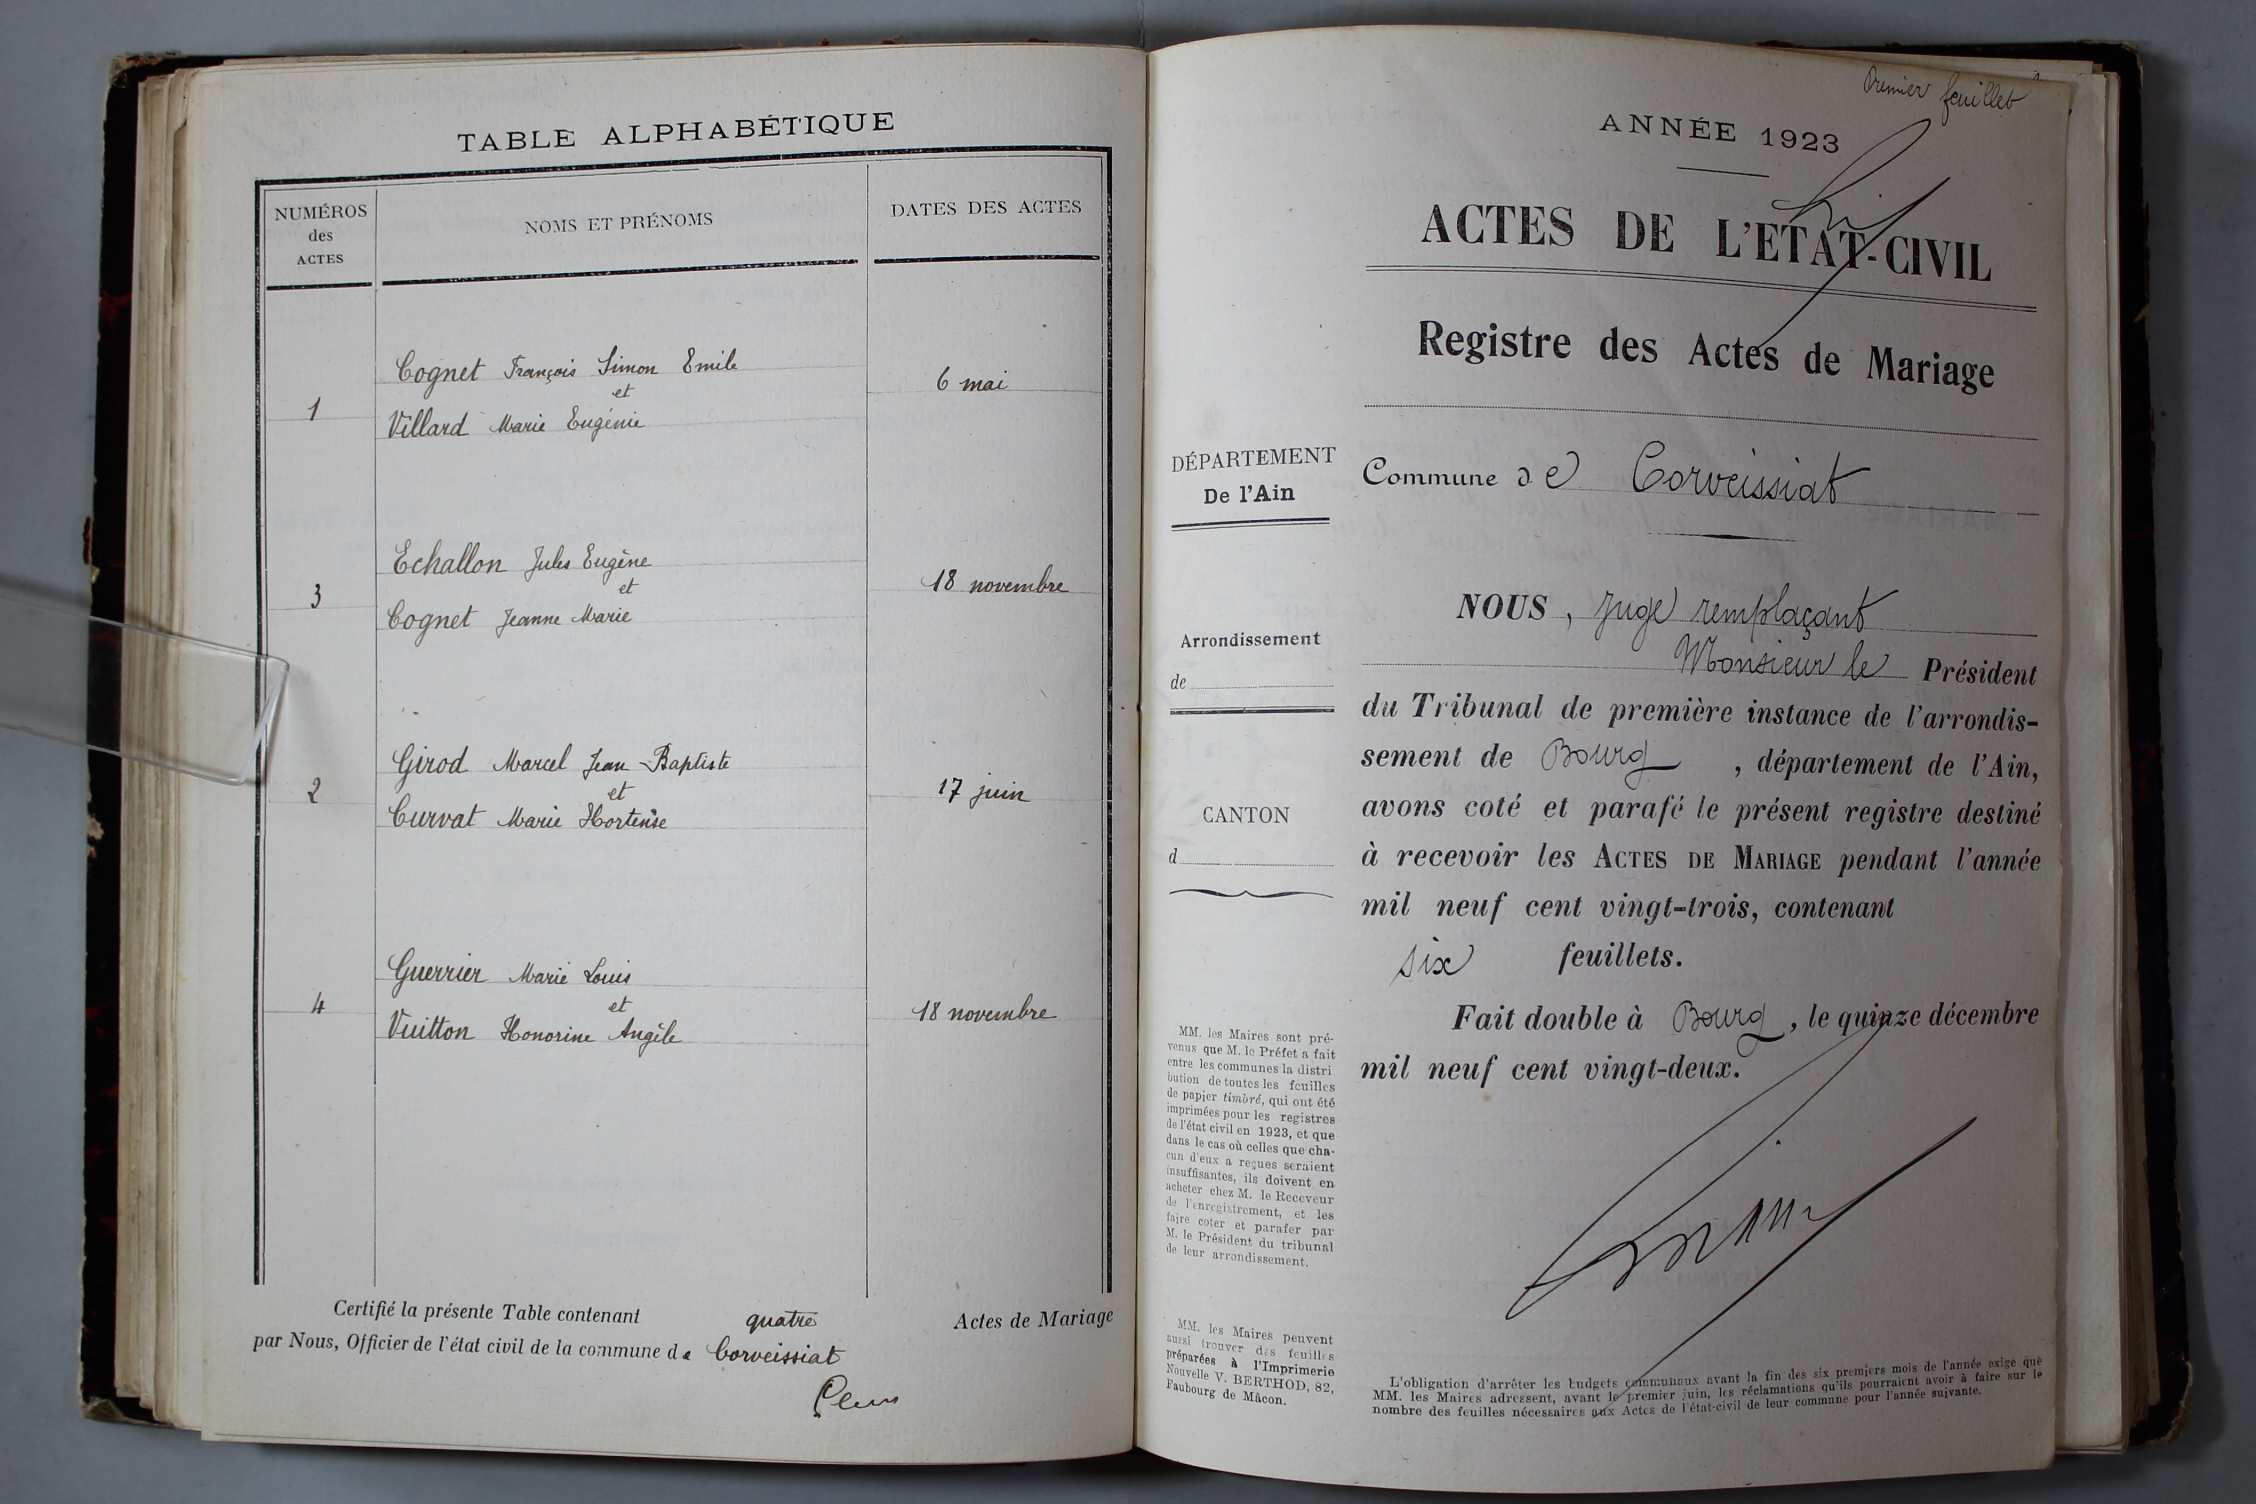 TABLE ALPHABÉTIQUE
NUMÉROS
des
ACTES
NOMS ET PRÉNOMS
DATES DES ACTES
Cognet François Simon Emile
et
1
6 mai
Villard Marie Eugénie
Echallon Jules Eugène
et
3
18 novembre
Cognet Jeanne Marie
Girod Marcel Jean-Baptiste
et
2
17 juin
Curvat Marie Hortense
Guerrier Marie Louis
et
4
18 novembre
Vuitton Honorine Angèle
Certifié la présente Table contenant quatre Actes de Mariage
par Nous, Officier de l'état civil de la commune de Corveissiat
Premier feuillet
ANNÉE 1923
ACTES DE L'ETAT-CIVIL
Registre des Actes de Mariage
DÉPARTEMENT
De l'Ain
Arrondissement
de
CANTON
d
MM. les Maires sont pré-
venus que M. le Préfet a fait
entre les communes la distri
bution de toutes les feuilles
de papier timbré, qui ont été
imprimées pour les registres
de l'état civil en 1923, et que
dans le cas où celles que cha-
cun d'eux a reçues seraient
insuffisantes, ils doivent en
acheter chez M. le Receveur
de l'enregistrement, et les
faire coter et parafer par
M. le Président du tribunal
de leur arrondissement.
MM. les Maires peuvent
aussi trouver des feuilles
préparées à l'Imprimerie
Nouvelle V. BERTHOD, 82,
Faubourg de Mâcon.
Commune de Corveissiat
NOUS, Juge remplaçant
Monsieur le Président
du Tribunal de première instance de l'arrondis-
sement de Bourg, département de l'Ain,
avons coté et parafé le présent registre destiné
à recevoir les ACTES DE MARIAGE pendant l'année
mil neuf cent vingt-trois, contenant
six feuillets.
Fait double à Bourg, le quinze décembre
mil neuf cent vingt-deux.
L'obligation d'arrêter les budgets communaux avant la fin des six premiers mois de l'année exige que
MM. les Maires adressent, avant le premier juin, les réclamations qu'ils pourraient avoir à faire sur le
nombre des feuilles nécessaires aux Actes de l'état-civil de leur commune pour l'année suivante.